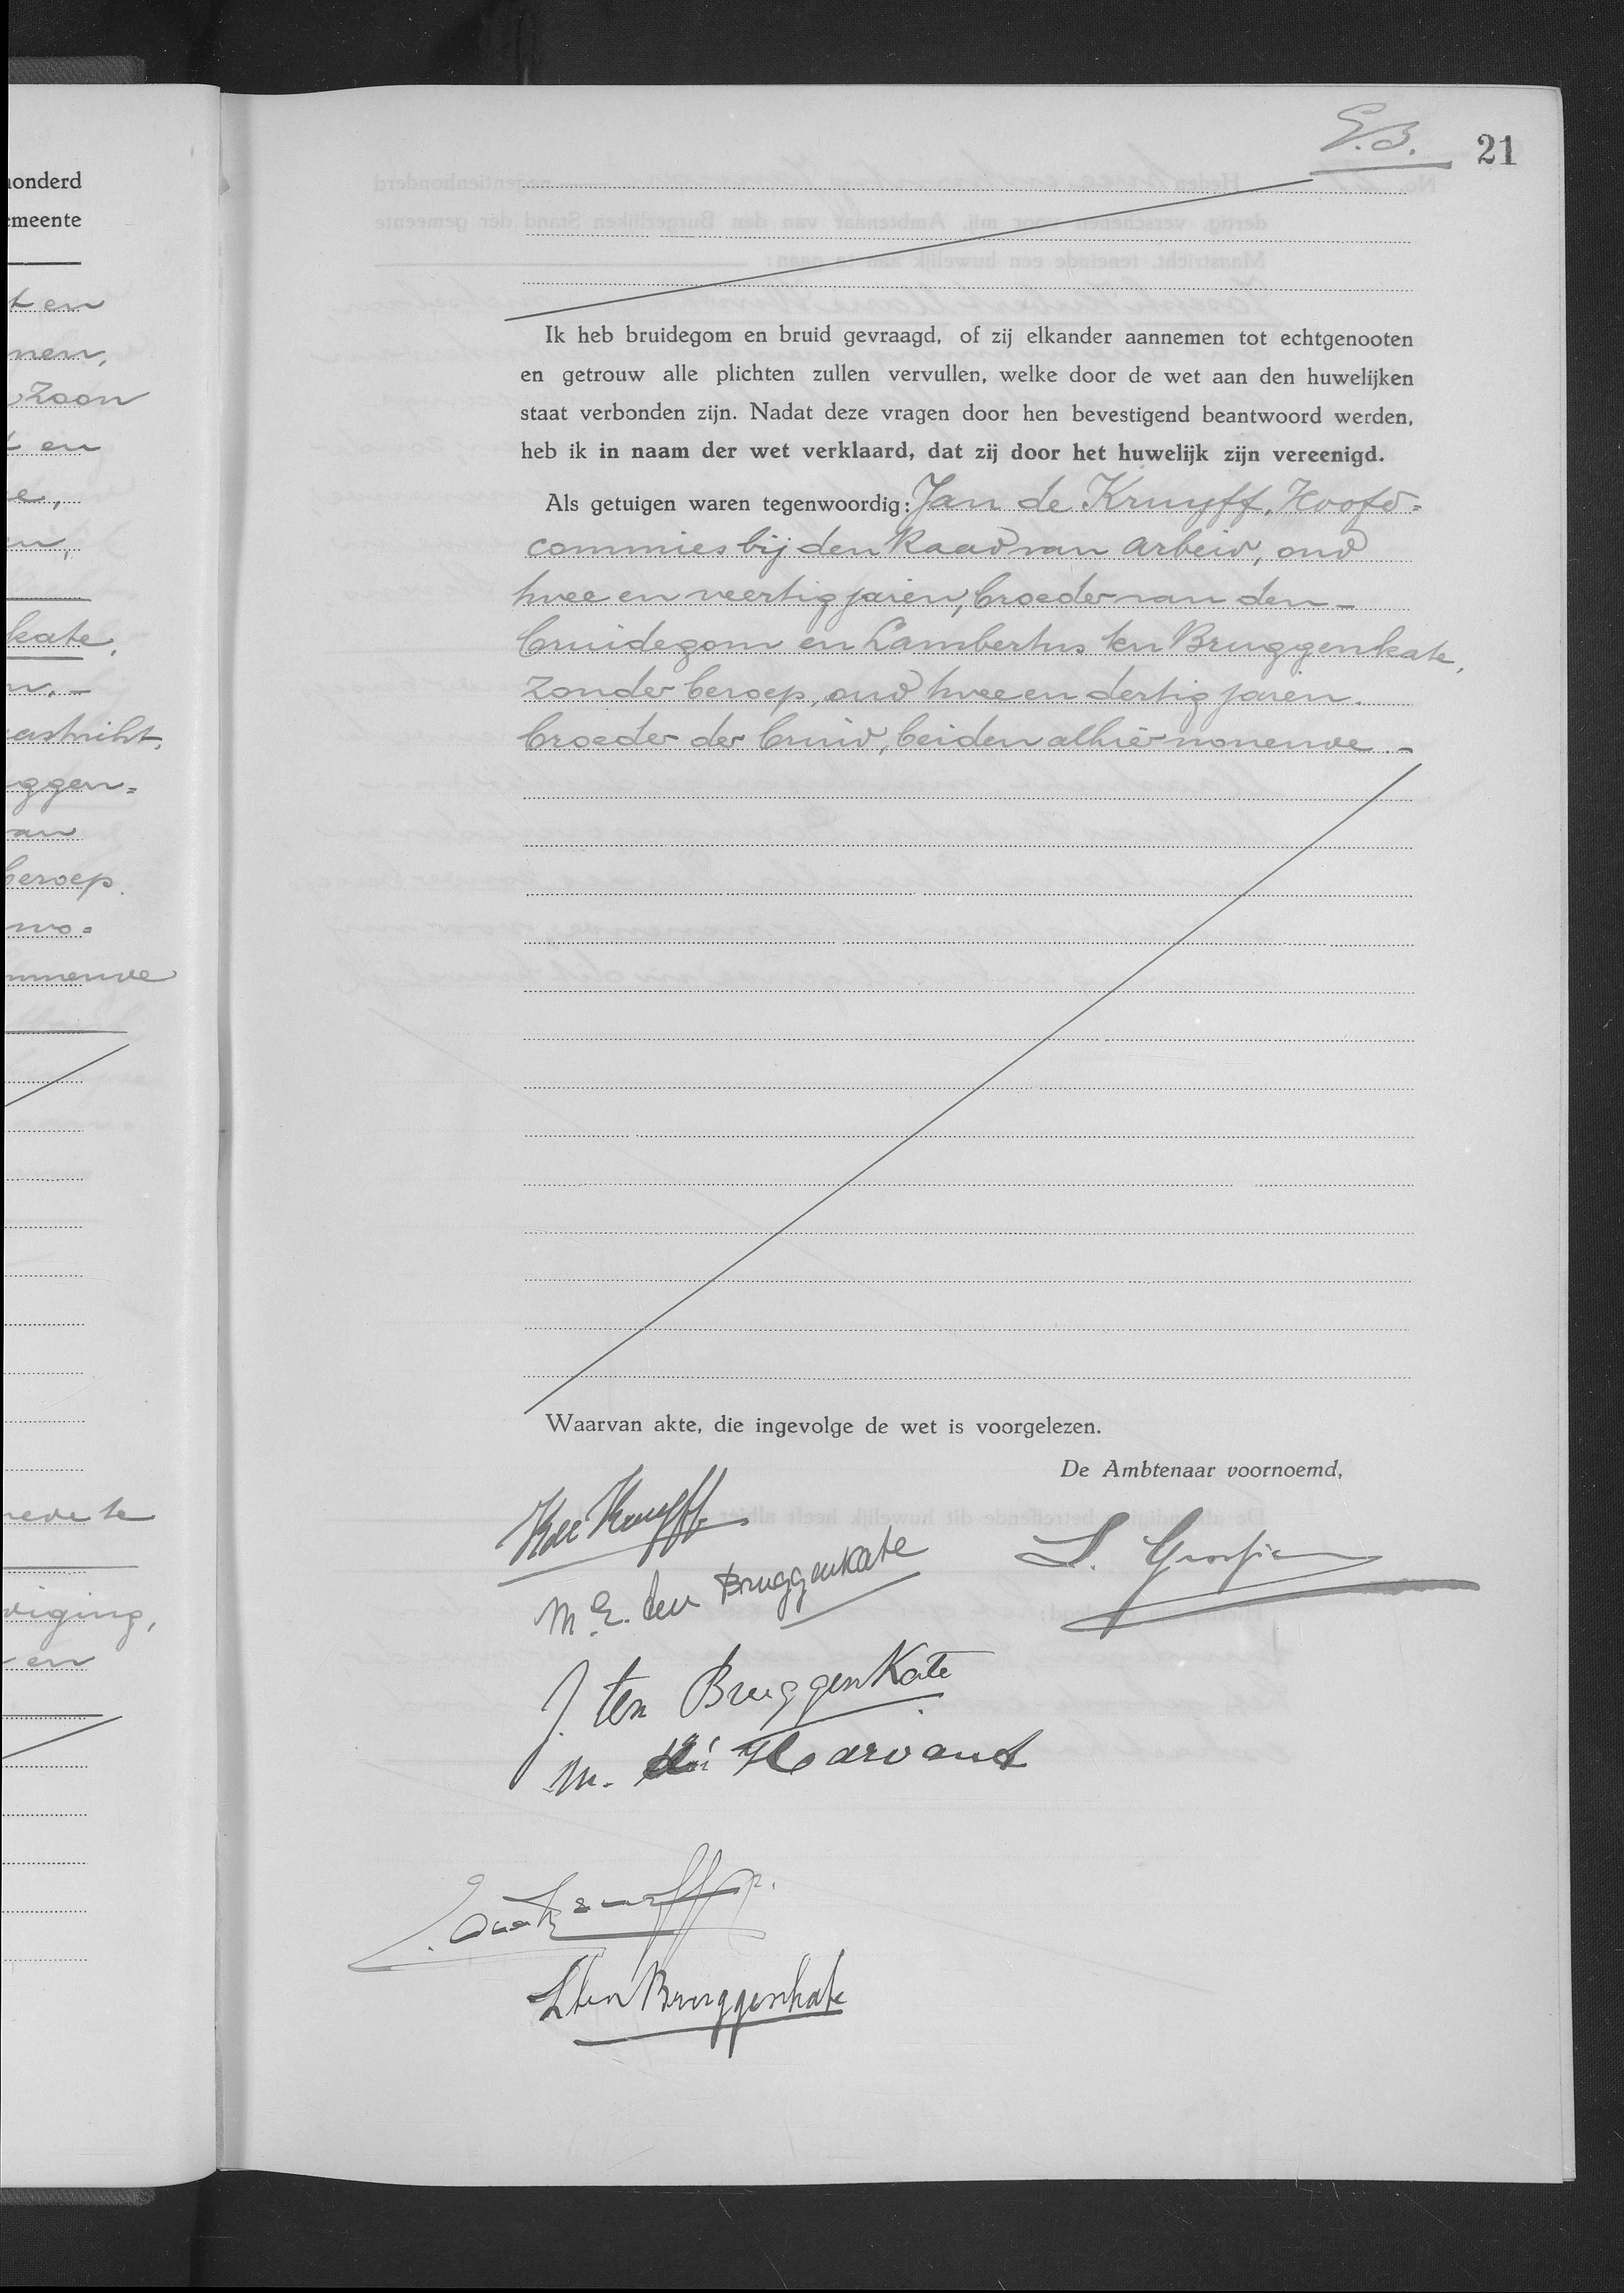 onderd
emeente
t en
nen,
zoon
t en
e,
en,
kate,
n. -
astricht,
ggen=
an
beroep.
wo=
nnenwe
te
iging,
en
G.B. 21
Ik heb bruidegom en bruid gevraagd, of zij elkander aannemen tot echtgenooten
en getrouw alle plichten zullen vervullen, welke door de wet aan den huwelijken
staat verbonden zijn. Nadat deze vragen door hen bevestigend beantwoord werden,
heb ik in naam der wet verklaard, dat zij door het huwelijk zijn vereenigd.
Als getuigen waren tegenwoordig: Jan de Kruyff, Hoofd=
commies bij den Raad van Arbeid, oud
twee en veertig jaren, broeder van den -
bruidegom en Lambertus ten Bruggenkate,
zonder beroep, oud twee en dertig jaren.
broeder der bruid, beiden alhier wonende. -
Waarvan akte, die ingevolge de wet is voorgelezen.
De Ambtenaar voornoemd,
K de Kruyff
M. E. ten Bruggenkate
J. ten BruggenKate
M. Harvant
L ten Bruggenkate